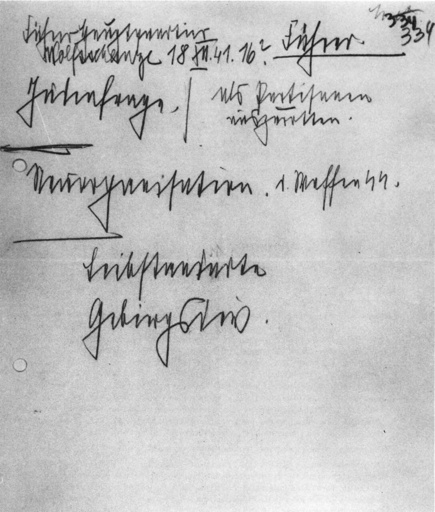 334
Führerhauptquartier
Wolfsschanze 18 XII.41. 16h Führer.
334
Judenfrage. | als Partisanen
auszurotten.
Neuorganisation. d. Waffen SS.
Leibstandarte
Gebirgsdiv.